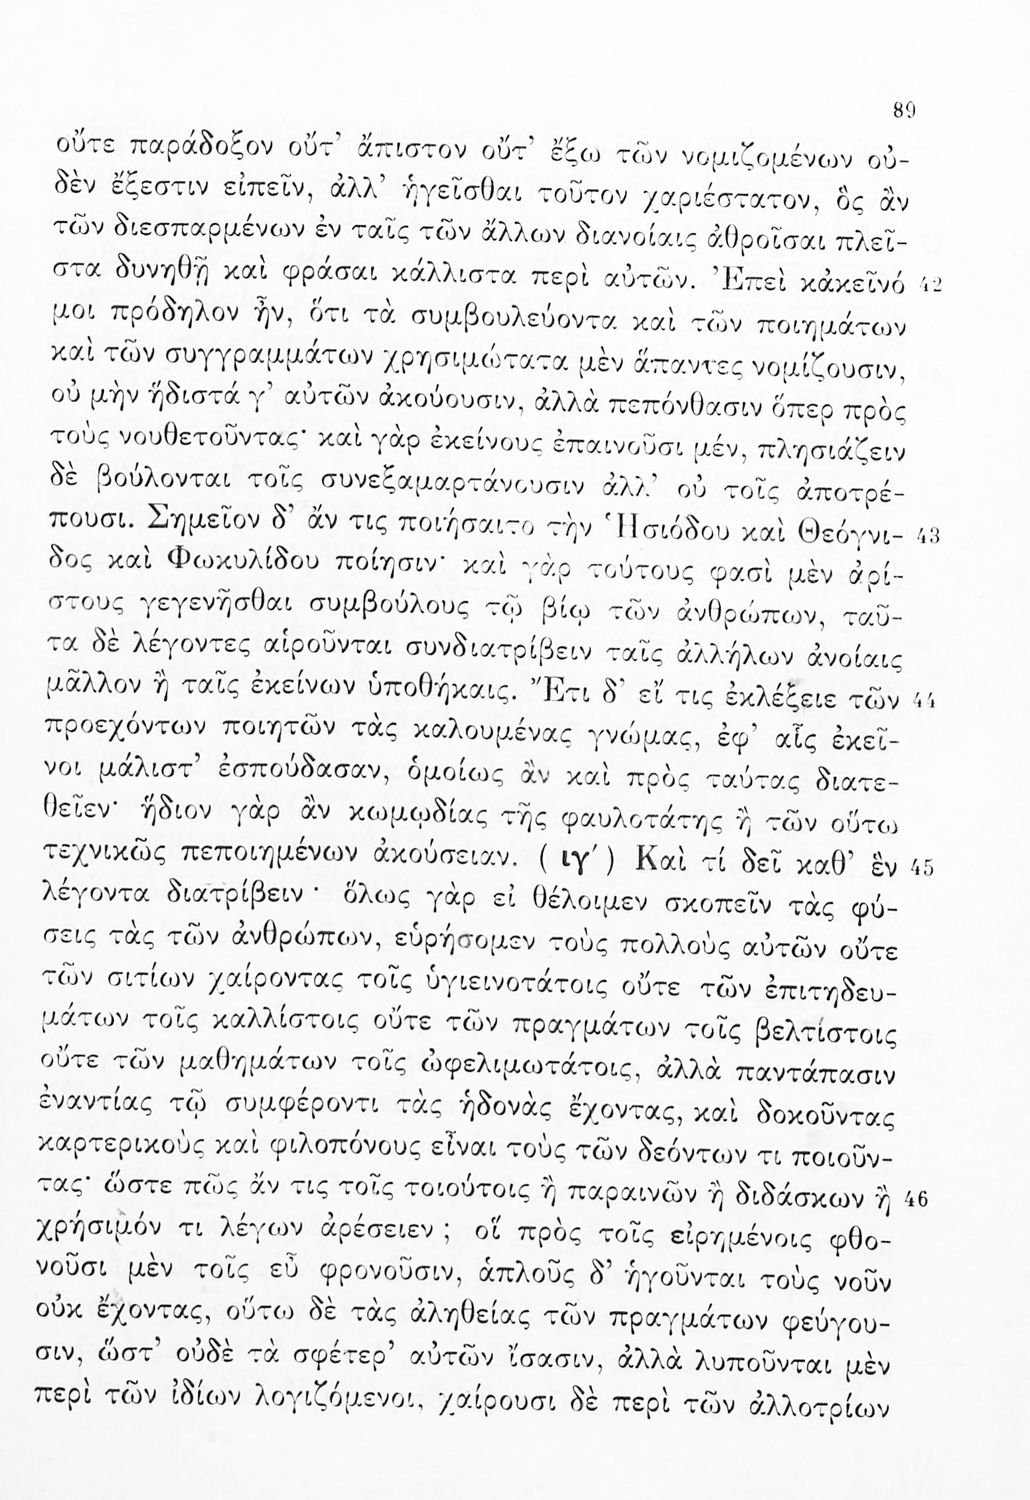 89
οὔτε παράδοξον οὔτ’ ἄπιστον οὔτ’ ἔξω τῶν νομιζομένων οὐ-
δὲν ἔξεστιν εἰπεῖν, ἀλλ’ ἡγεῖσθαι τοῦτον χαριέστατον, ὃς ἂν
τῶν διεσπαρμένων ἐν ταῖς τῶν ἄλλων διανοίαις ἀθροῖσαι πλεῖ-
στα δυνηθῇ καὶ φράσαι κάλλιστα περὶ αὐτῶν. Ἐπεὶ κἀκεῖνό 42
μοι πρόδηλον ἦν, ὅτι τὰ συμβουλεύοντα καὶ τῶν ποιημάτων
καὶ τῶν συγγραμμάτων χρησιμώτατα μὲν ἅπαντες νομίζουσιν,
οὐ μὴν ἥδιστά γ’ αὐτῶν ἀκούουσιν, ἀλλὰ πεπόνθασιν ὅπερ πρὸς
τοὺς νουθετοῦντας· καὶ γὰρ ἐκείνους ἐπαινοῦσι μέν, πλησιάζειν
δὲ βούλονται τοῖς συνεξαμαρτάνουσιν ἀλλ’ οὐ τοῖς ἀποτρέ-
πουσι. Σημεῖον δ’ ἄν τις ποιήσαιτο τὴν Ἡσιόδου καὶ Θεόγνι- 43
δος καὶ Φωκυλίδου ποίησιν· καὶ γὰρ τούτους φασὶ μὲν ἀρί-
στους γεγενῆσθαι συμβούλους τῷ βίῳ τῶν ἀνθρώπων, ταῦ-
τα δὲ λέγοντες αἱροῦνται συνδιατρίβειν ταῖς ἀλλήλων ἀνοίαις
μᾶλλον ἢ ταῖς ἐκείνων ὑποθήκαις. Ἔτι δ’ εἴ τις ἐκλέξειε τῶν 44
προεχόντων ποιητῶν τὰς καλουμένας γνώμας, ἐφ’ αἷς ἐκεῖ-
νοι μάλιστ’ ἐσπούδασαν, ὁμοίως ἂν καὶ πρὸς ταύτας διατε-
θεῖεν· ἥδιον γὰρ ἂν κωμῳδίας τῆς φαυλοτάτης ἢ τῶν οὕτω
τεχνικῶς πεποιημένων ἀκούσειαν. ( ιγ΄ ) Καὶ τί δεῖ καθ’ ἓν 45
λέγοντα διατρίβειν · ὅλως γὰρ εἰ θέλοιμεν σκοπεῖν τὰς φύ-
σεις τὰς τῶν ἀνθρώπων, εὑρήσομεν τοὺς πολλοὺς αὐτῶν οὔτε
τῶν σιτίων χαίροντας τοῖς ὑγιεινοτάτοις οὔτε τῶν ἐπιτηδευ-
μάτων τοῖς καλλίστοις οὔτε τῶν πραγμάτων τοῖς βελτίστοις
οὔτε τῶν μαθημάτων τοῖς ὠφελιμωτάτοις, ἀλλὰ παντάπασιν
ἐναντίας τῷ συμφέροντι τὰς ἡδονὰς ἔχοντας, καὶ δοκοῦντας
καρτερικοὺς καὶ φιλοπόνους εἶναι τοὺς τῶν δεόντων τι ποιοῦν-
τας· ὥστε πῶς ἄν τις τοῖς τοιούτοις ἢ παραινῶν ἢ διδάσκων ἢ 46
χρήσιμόν τι λέγων ἀρέσειεν ; οἵ πρὸς τοῖς εἰρημένοις φθο-
νοῦσι μὲν τοῖς εὖ φρονοῦσιν, ἁπλοῦς δ’ ἡγοῦνται τοὺς νοῦν
οὐκ ἔχοντας, οὕτω δὲ τὰς ἀληθείας τῶν πραγμάτων φεύγου-
σιν, ὥστ’ οὐδὲ τὰ σφέτερ’ αὐτῶν ἴσασιν, ἀλλὰ λυποῦνται μὲν
περὶ τῶν ἰδίων λογιζόμενοι, χαίρουσι δὲ περὶ τῶν ἀλλοτρίων